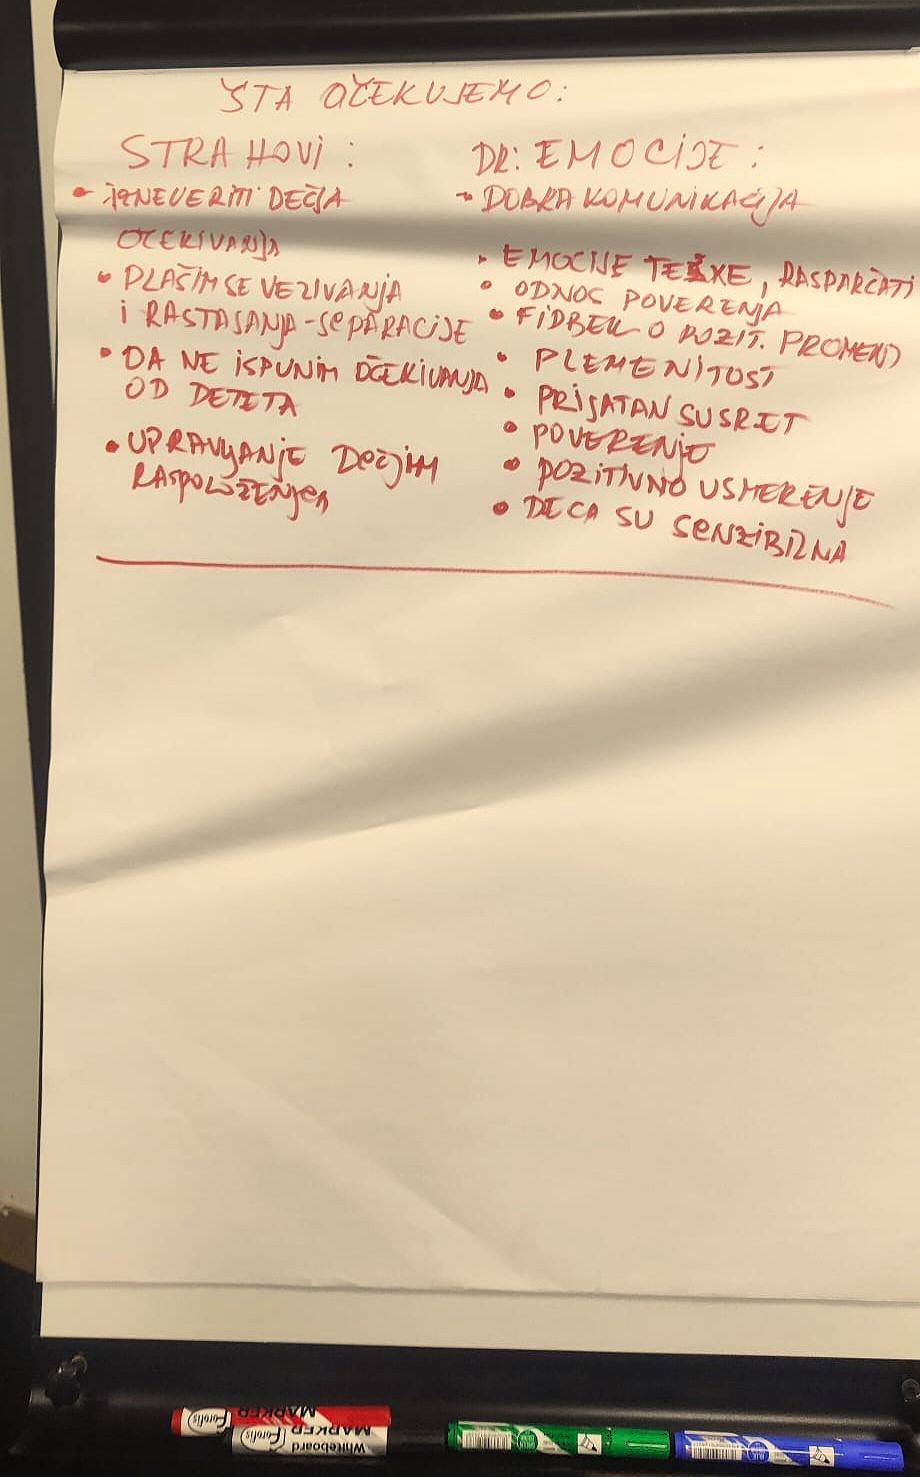 ŠTA OČEKUJEMO:
STRAHOVI:
- IZNEVERITI DEČJA
OČEKIVANJA
• PLAŠIM SE VEZIVANJA
I RASTAJANJA - SEPARACIJE
• DA NE ISPUNIM OČEKIVANJA
OD DETETA
• UPRAVLJANJE DEČJIM
RASPOLOŽENJEM
DR: EMOCIJE:
- DOBRA KOMUNIKACIJA
• EMOCIJE TEŠKE, RASPARČATI
• ODNOS POVERENJA
• FIDBEK O POZIT. PROMENI
• PLEMENITOST
• PRIJATAN SUSRET
• POVERENJE
• POZITIVNO USMERENJE
• DECA SU SENZIBILNA
MARKER
Forofis
MARKER
Whiteboard
Forofis